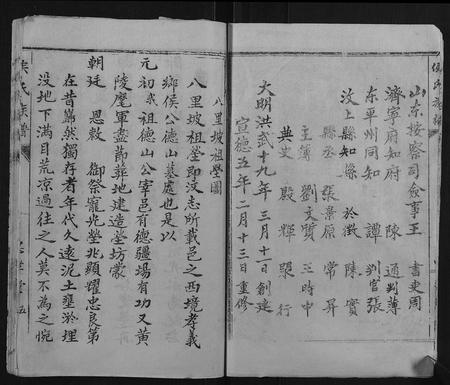 侯氏族譜
山東按察司僉事王 書吏周
濟寧府知府 陳 通判薄
東平州同知 譚 判官張
汶上縣知縣 於徵 陳實
縣丞 張景原 常昇
主簿 劉文質 王時中
典史 殷輝 梁行
大明洪武十九年三月十一日創建
宣德五年二月十三日重修
八里坡祖塋圖
八里坡祖塋即汶志所載邑之西境孝義
鄉侯公德山墓處也是以
元初我祖德山公宰邑有德疆場有功又黃
陵麾軍盡節葬地建造塋坊蒙
朝廷 恩敕 御祭寵光塋兆顯耀忠良第
在昔巋然獨存者年代久遠泥土壅淤埋
沒地下滿目荒涼過往之人莫不為之惋
侯氏族譜
五